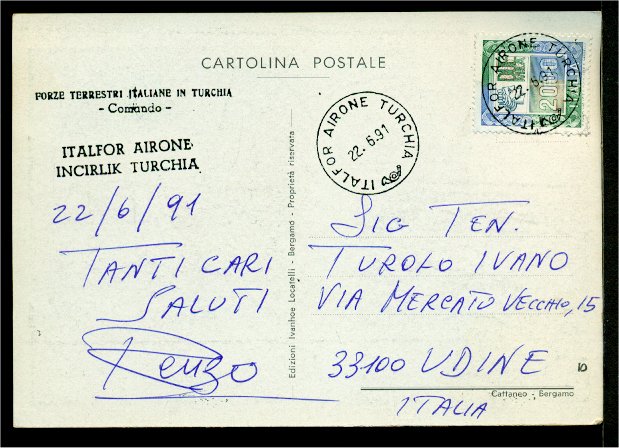 CARTOLINA POSTALE
FORZE TERRESTRI ITALIANE IN TURCHIA
- Comando -
ITALFOR AIRONE
INCIRLIK TURCHIA
22/6/91
TANTI CARI
SALUTI
Renzo
Edizioni Ivanhoe Locatelli - Bergamo - Proprietà riservata
ITALFOR AIRONE TURCHIA
22.6.91
ITALFOR AIRONE TURCHIA
22.6.91
2000
SIG TEN.
TUROLO IVANO
VIA MERCATO VECCHIO, 15
33100 UDINE
10
Cattaneo - Bergamo
ITALIA